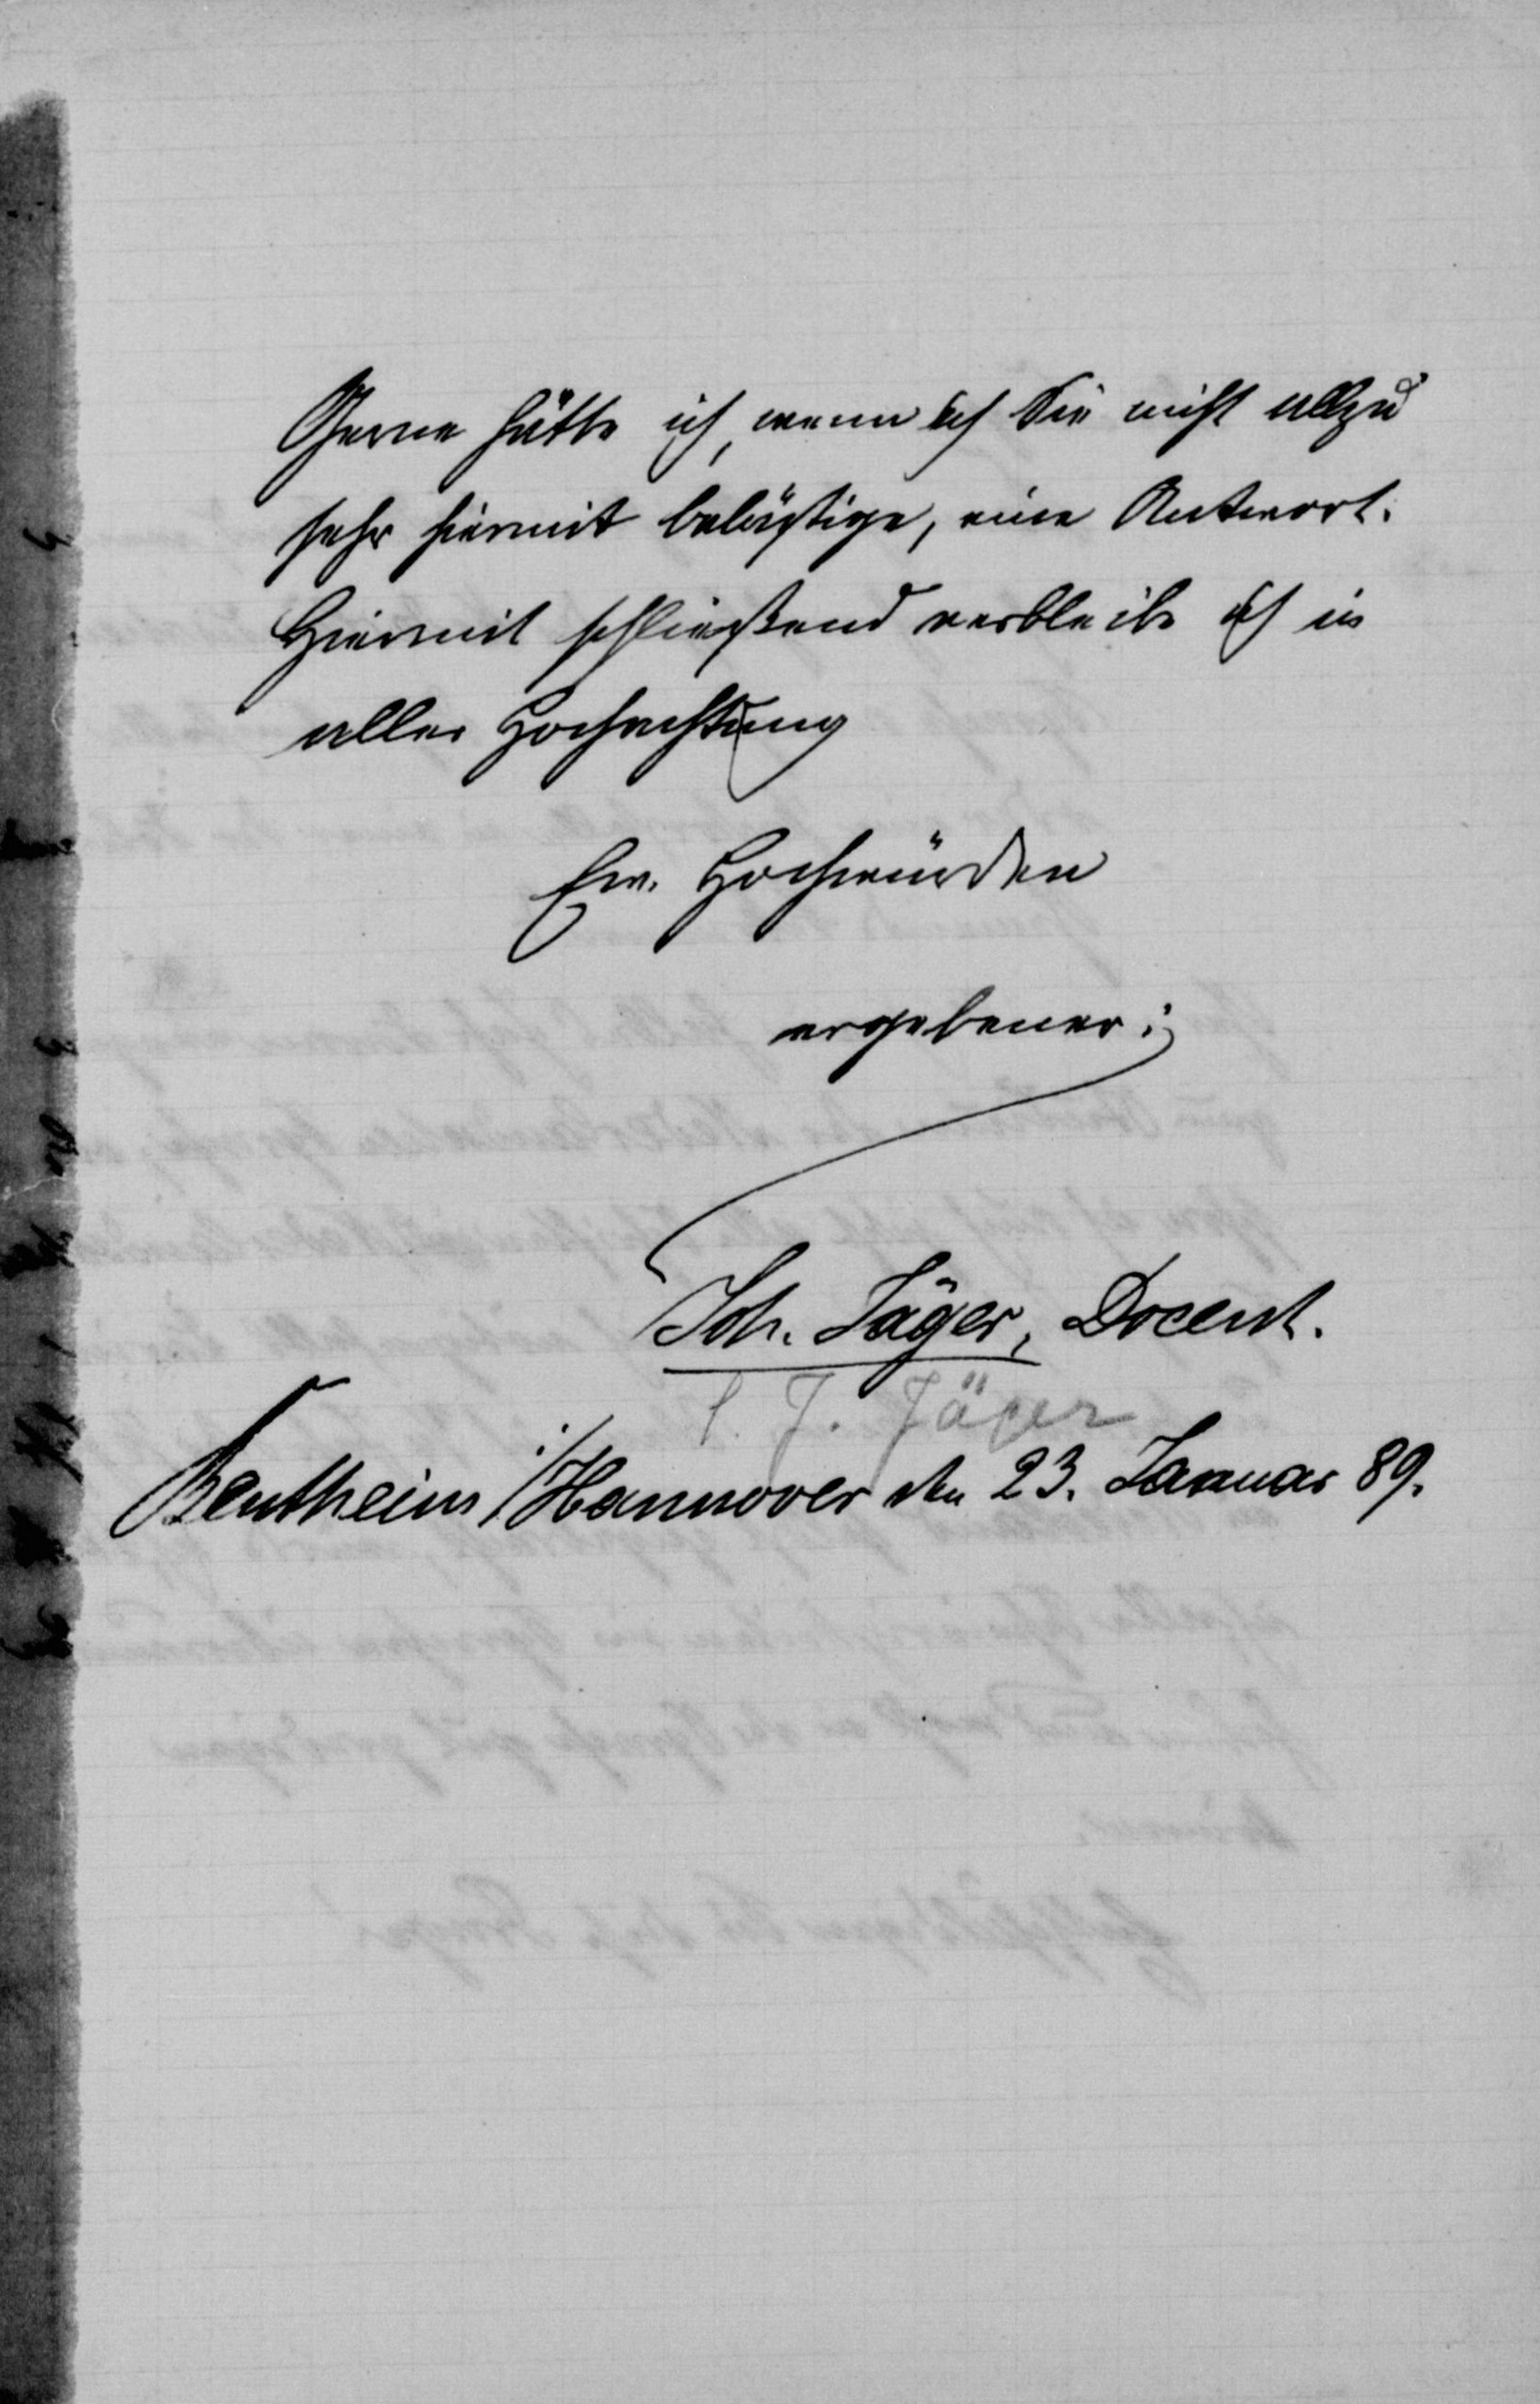 Gerne hätte ich, wenn ich Sie nicht allzu
sehr hiermit belästige, eine Antwort.
Hiermit schließend verbleibe ich in
aller Hochachtung
Ew. Hochwürden
ergebener:
Joh. Jäger, Docent.
J. Jäger
Bentheim i/Hannover den 23. Januar 89.